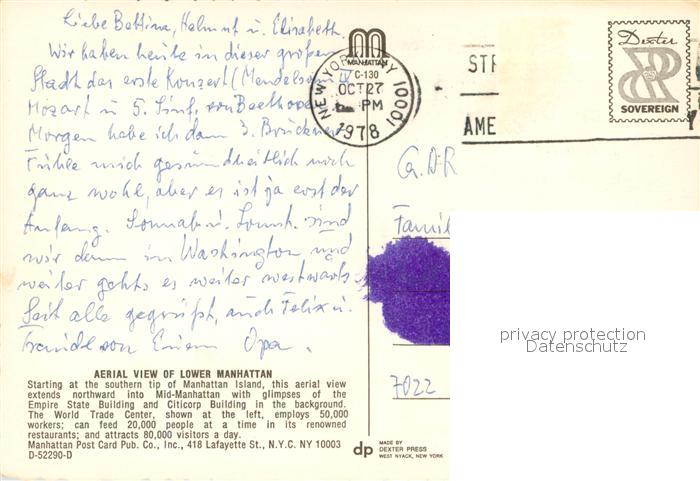 Liebe Bettina, Helmut u. Elisabeth.
Wir haben heute in dieser großen
Stadt das erste Konzert (Mendelssohn IV
Mozart u 5. Sinf. von Beethoven
Morgen habe ich dann 3. Bruckner
Fühle mich gesundheitlich noch
ganz wohl, aber es ist ja erst der
Anfang. Sonnab. u. Sonnt. sind
wir dann in Washington und
weiter gehts es weiter westwärts
Seit alle gegrüßt, auch Felix u.
Traudel von Eurem Opa.
M
MANHATTAN
NEW YORK, NY 10001
C-130
OCT 27
PM
1978
STR
AME
Dexter
SOVEREIGN
G.D.R
Famil
7022
privacy protection
Datenschutz
AERIAL VIEW OF LOWER MANHATTAN
Starting at the southern tip of Manhattan Island, this aerial view
extends northward into Mid-Manhattan with glimpses of the
Empire State Building and Citicorp Building in the background.
The World Trade Center, shown at the left, employs 50,000
workers; can feed 20,000 people at a time in its renowned
restaurants; and attracts 80,000 visitors a day.
Manhattan Post Card Pub. Co., Inc., 418 Lafayette St., N.Y.C. NY 10003
D-52290-D
dp
MADE BY
DEXTER PRESS
WEST NYACK, NEW YORK